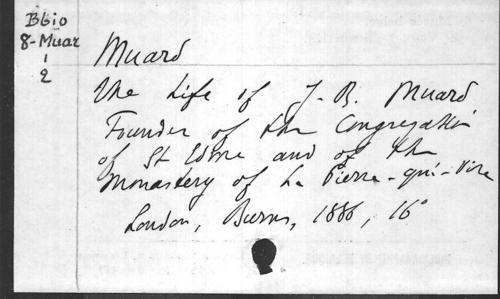 Bbio
8-Muar
1
2
Muard
The Life of J. B. Muard
Founder of the Congregation
of St Edme and of the
Monastery of La Pierre-qui-Vire
London, Burns, 1886, 16°